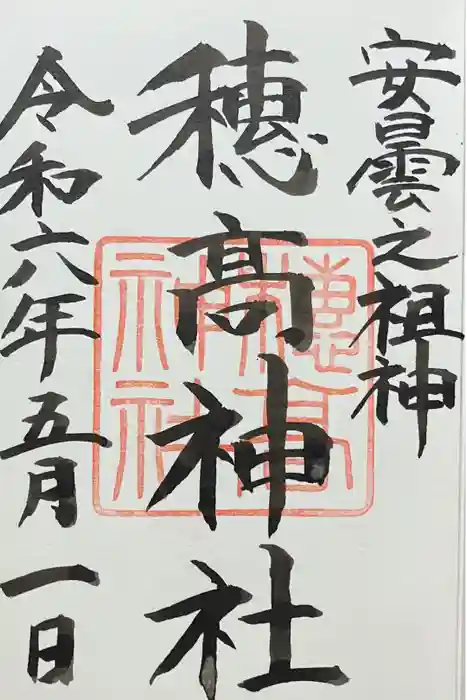 安曇之祖神
穂高神社
穂高
神社
令和六年五月一日